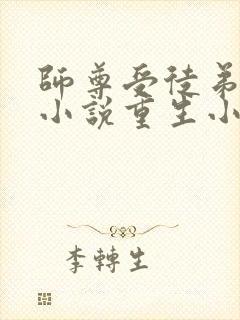 師尊受徒弟
小說重生小
李轉生